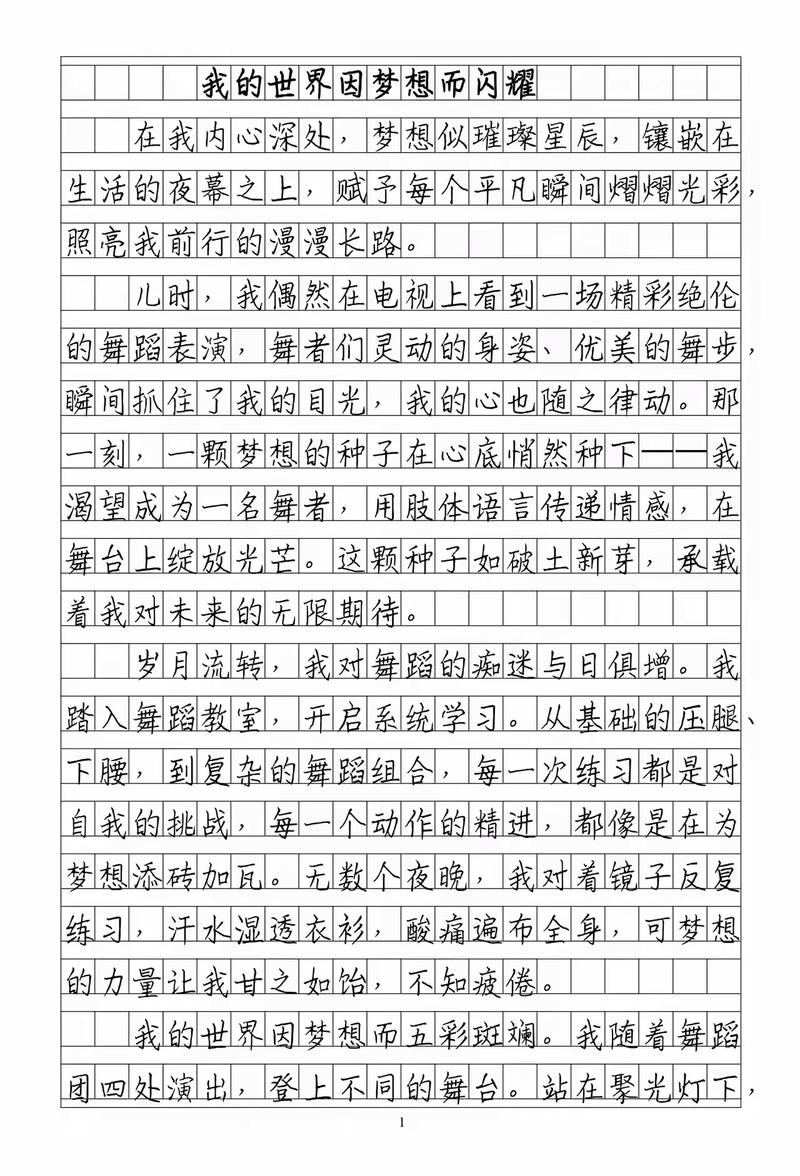 我的世界因梦想而闪耀
在我内心深处，梦想似璀璨星辰，镶嵌在
生活的夜幕之上，赋予每个平凡瞬间熠熠光彩，
照亮我前行的漫漫长路。
儿时，我偶然在电视上看到一场精彩绝伦
的舞蹈表演，舞者们灵动的身姿、优美的舞步，
瞬间抓住了我的目光，我的心也随之律动。那
一刻，一颗梦想的种子在心底悄然种下——我
渴望成为一名舞者，用肢体语言传递情感，在
舞台上绽放光芒。这颗种子如破土新芽，承载
着我对未来的无限期待。
岁月流转，我对舞蹈的痴迷与日俱增。我
踏入舞蹈教室，开启系统学习。从基础的压腿、
下腰，到复杂的舞蹈组合，每一次练习都是对
自我的挑战，每一个动作的精进，都像是在为
梦想添砖加瓦。无数个夜晚，我对着镜子反复
练习，汗水湿透衣衫，酸痛遍布全身，可梦想
的力量让我甘之如饴，不知疲倦。
我的世界因梦想而五彩斑斓。我随着舞蹈
团四处演出，登上不同的舞台。站在聚光灯下，
1